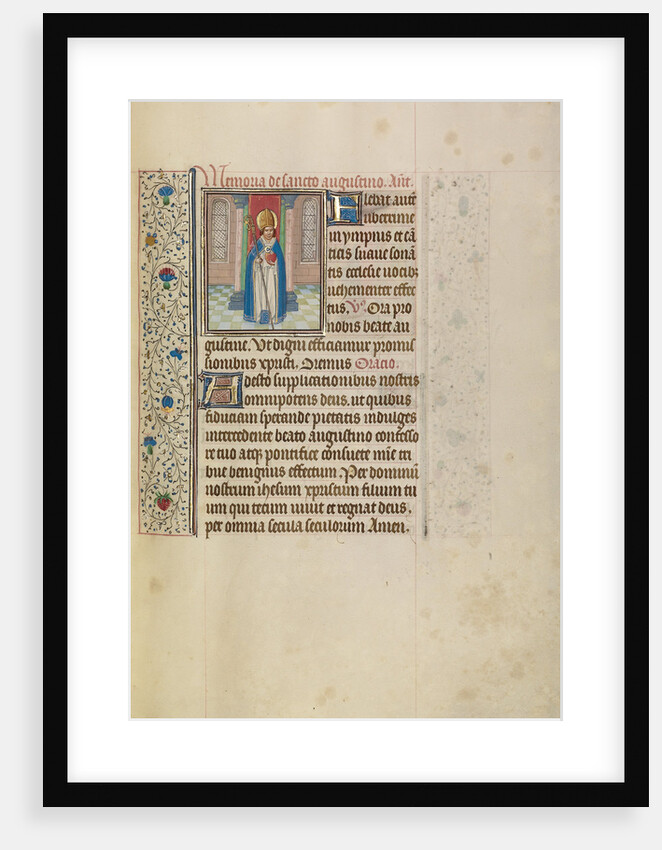 Memoria de sancto augustino. Añt.
Flebat aut̃
uberrime
in ympnis et cã
ticis suaue sonã
tis ecclesie uocibꝫ
uehementer affec
tus. V̊. Ora pro
nobis beate au
gustine. Ut digni efficiamur promis
sionibus xpristi. Oremus Oracio.
Adesto supplicationibus nostris
omnipotens deus. ut quibus
fiduciam sperande pietatis indulges
intercedente beato augustino confesso
re tuo atqꝫ pontifice consuete mĩe tri
bue benignus effectum. Per dominũ
nostrum ihesum xpristum filium tu
um qui tecum uiuit et regnat deus.
per omnia secula seculorum Amen.